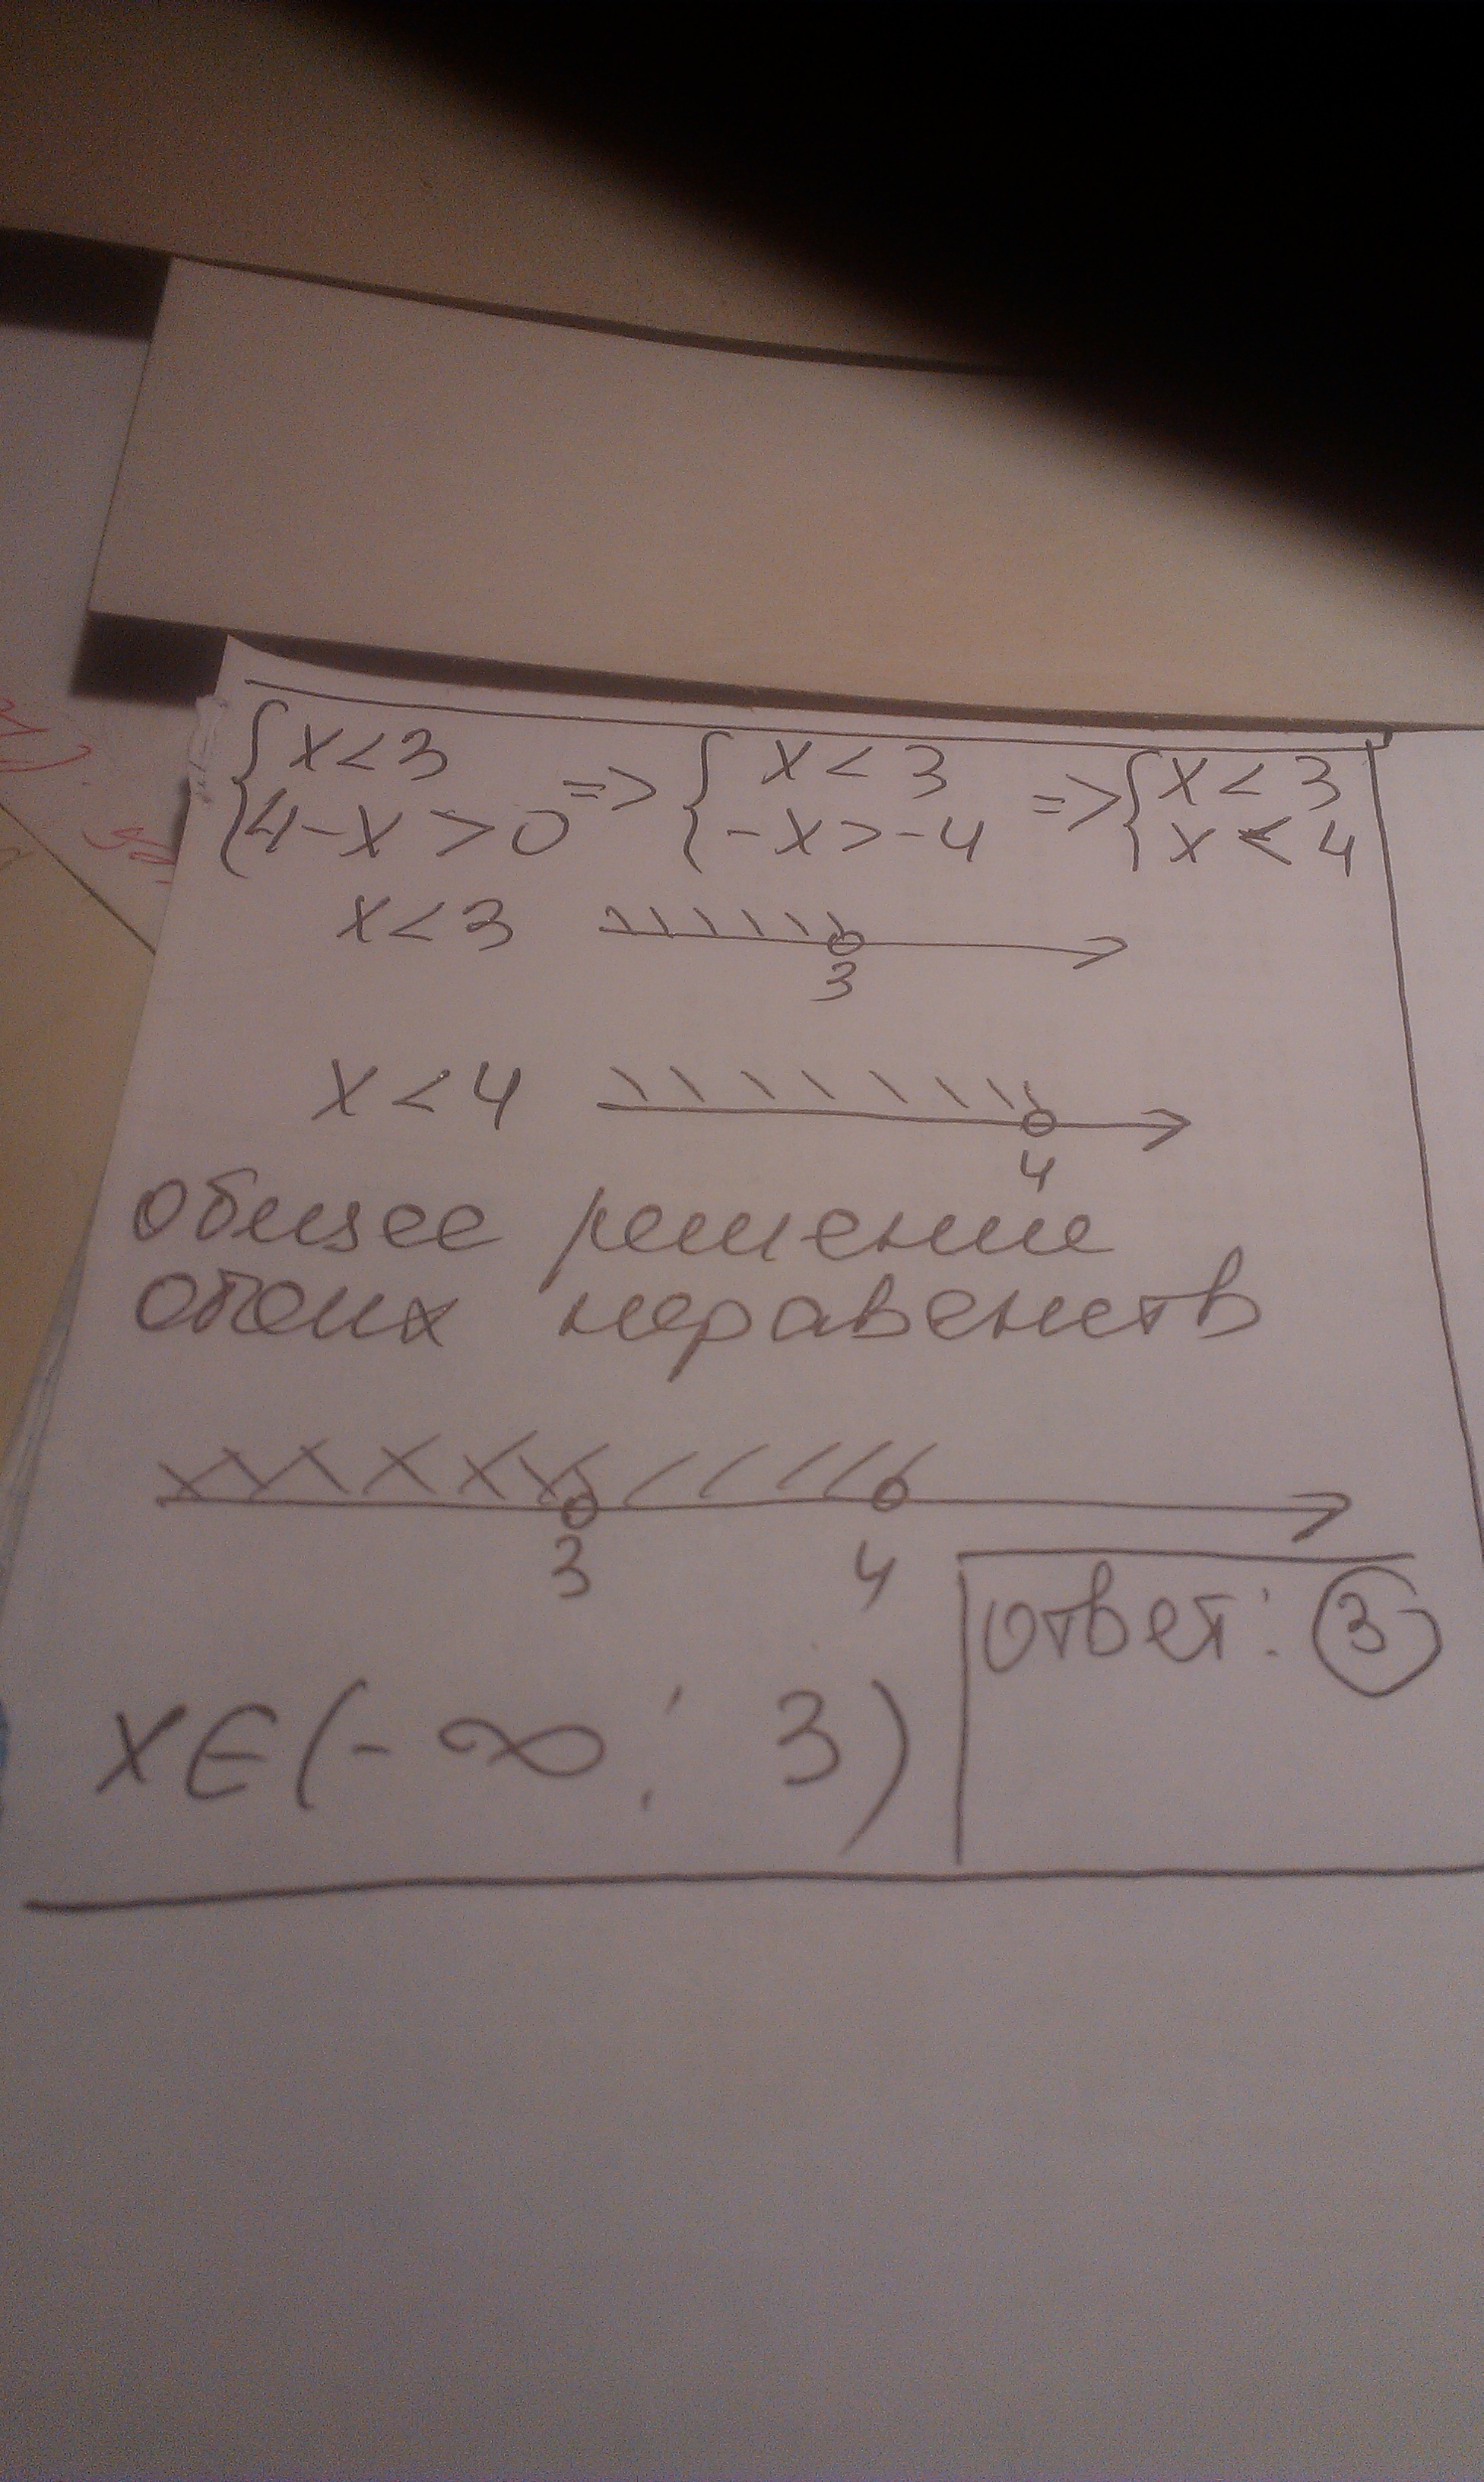 {x<3 {4-x>0 => {x<3 {-x>-4 => {x<3 {x<4
x<3
3
x<4
4
общее решение
обоих неравенств
3 4
ответ: 3
x∈(-∞; 3)